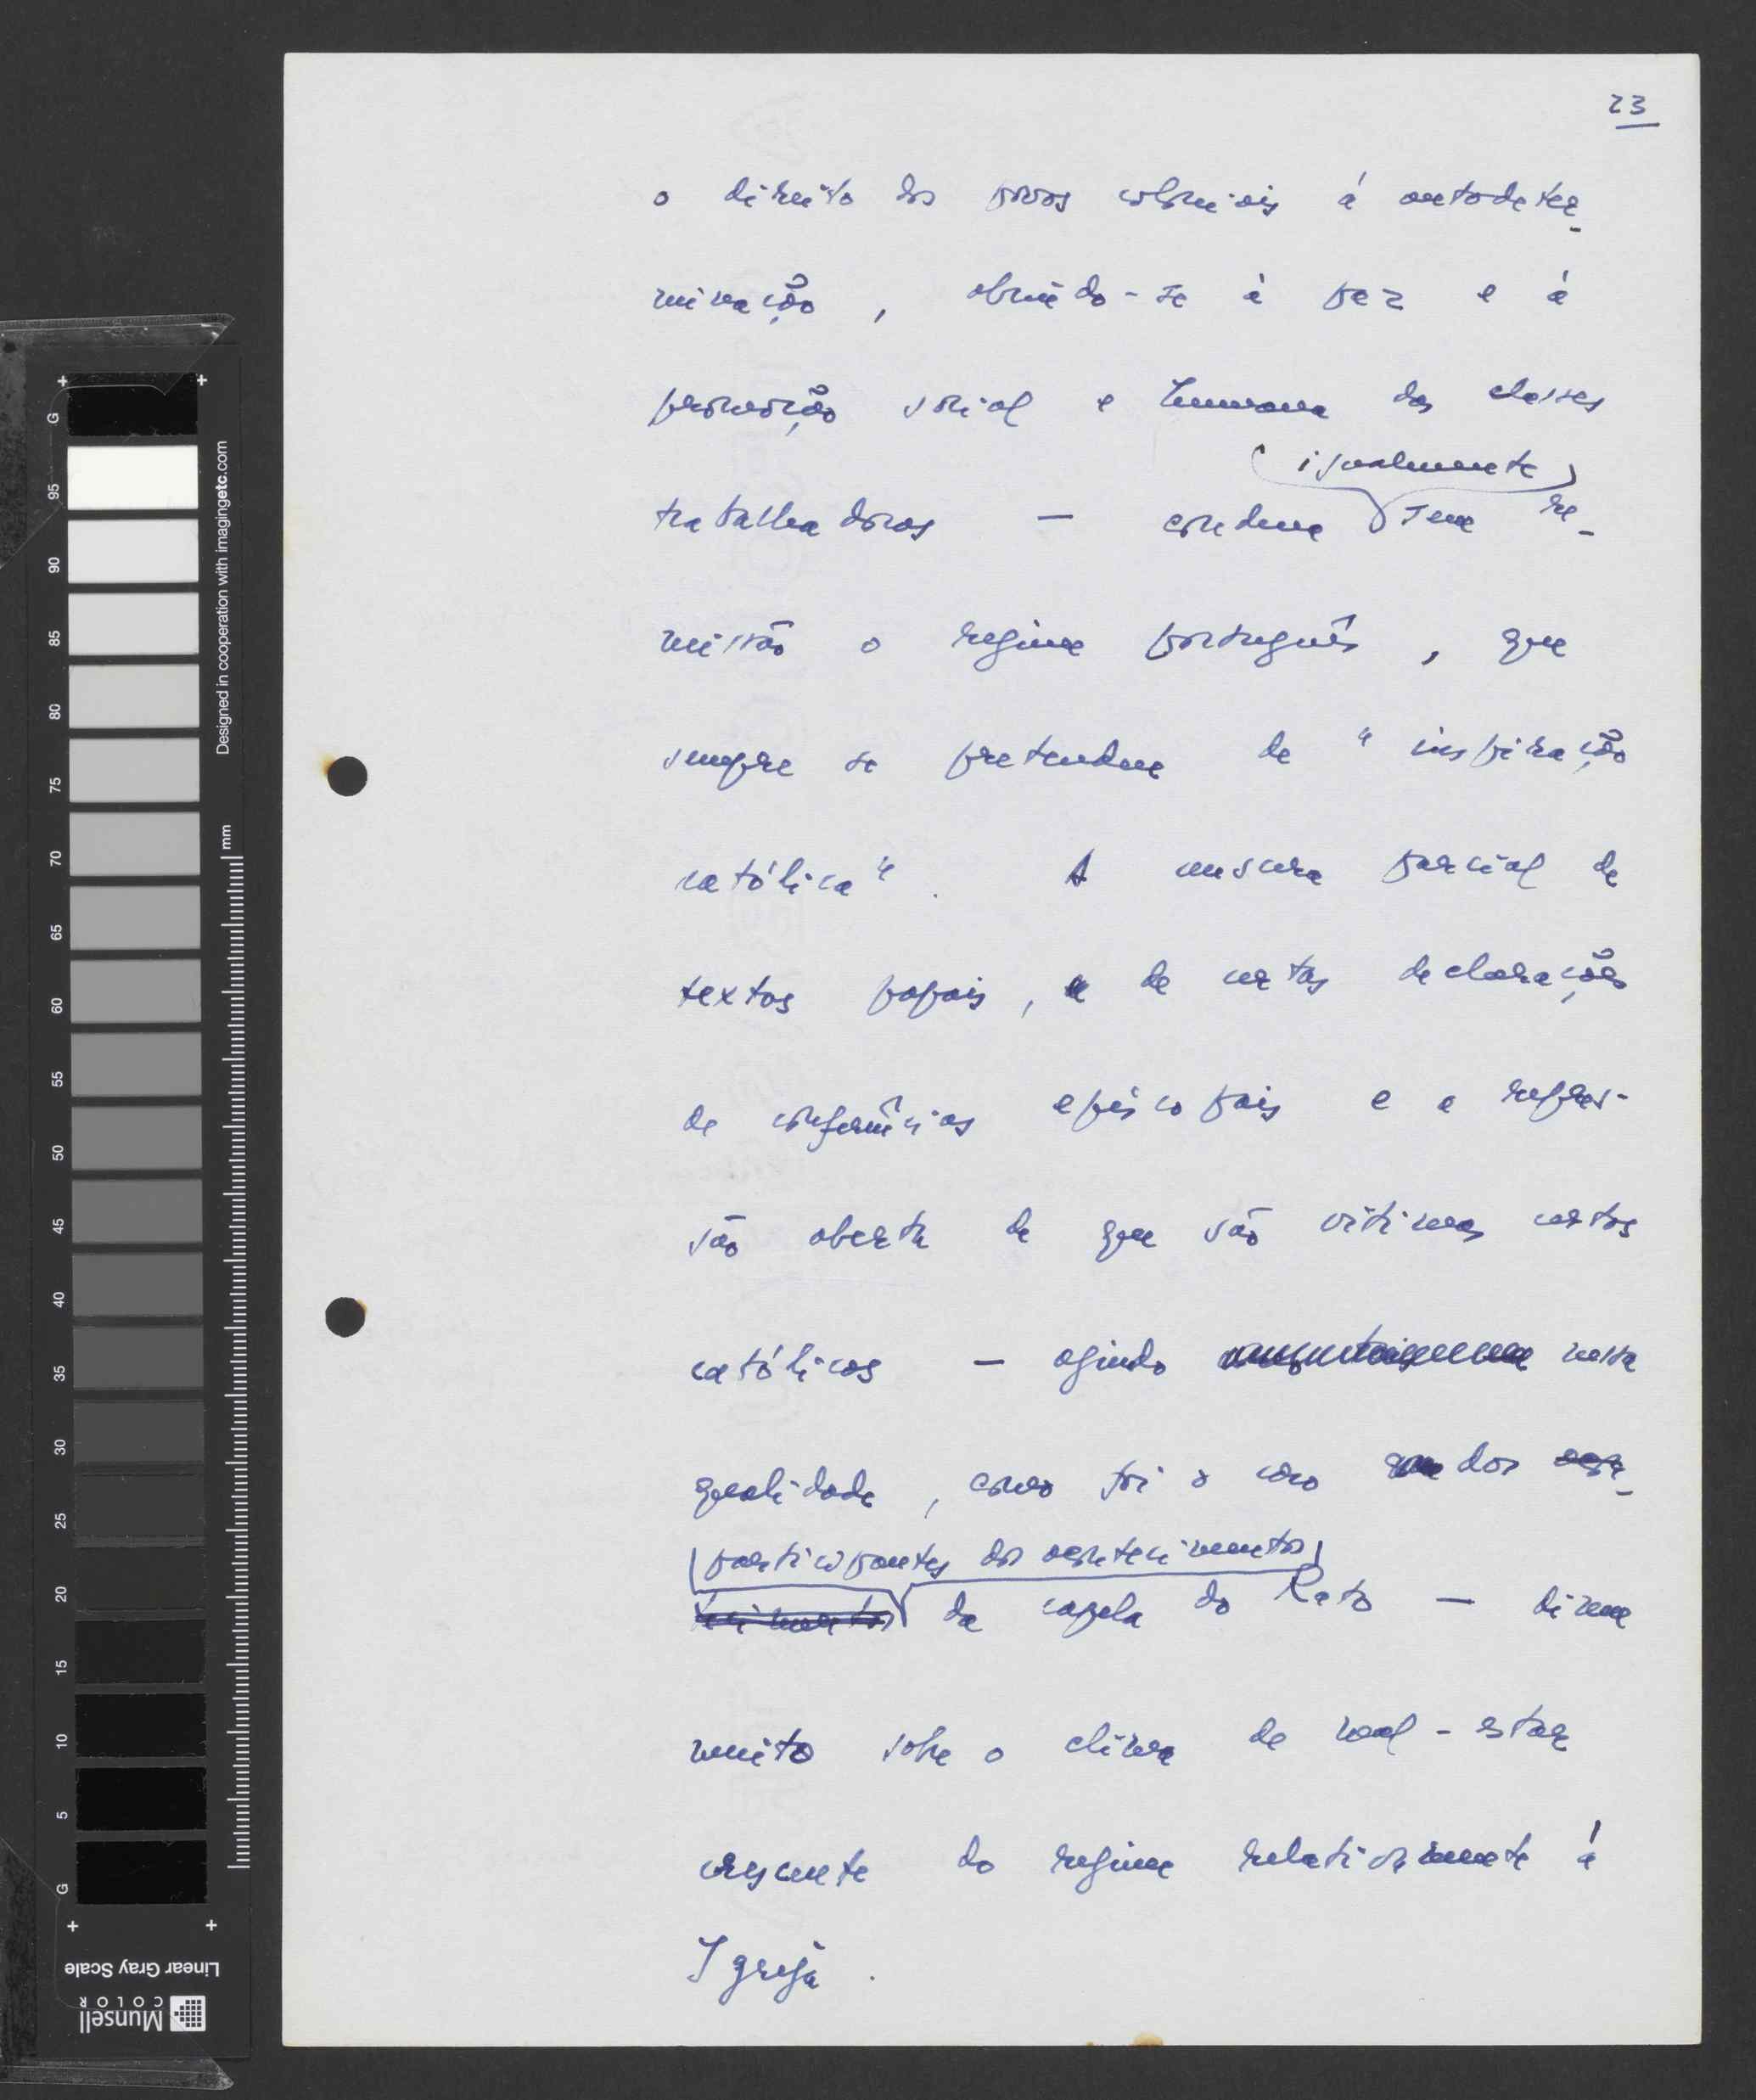 23
o direito dos povos coloniais á autodeter-
minação, abrindo-se à paz e á
promoção social e humana das classes
(igualmente)
trabalhadoras — condena sem re-
missão o regime português, que
sempre se pretendeu de "inspiração
católica". A censura parcial de
textos papais, de certas declarações
de conferências episcopais e a repres-
são aberta de que são vítimas certos
católicos — agindo nessa
qualidade, como foi o caso dos
participantes dos acontecimentos
da capela do Rato — dizem
muito sobre o clima de mal-estar
crescente do regime relativamente á
Igreja.
Designed in cooperation with imagingetc.com
mm
G
95
90
85
80
75
70
65
60
55
50
45
40
35
30
25
20
15
10
5
G
Linear Gray Scale
Munsell
COLOR